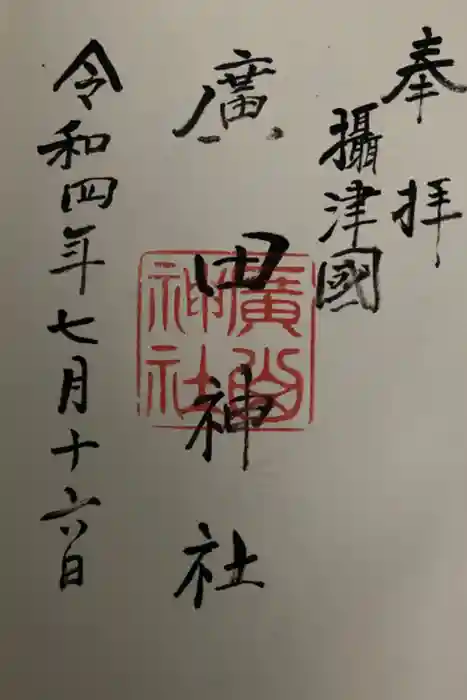 奉拝
攝津國
廣田神社
令和四年七月十六日